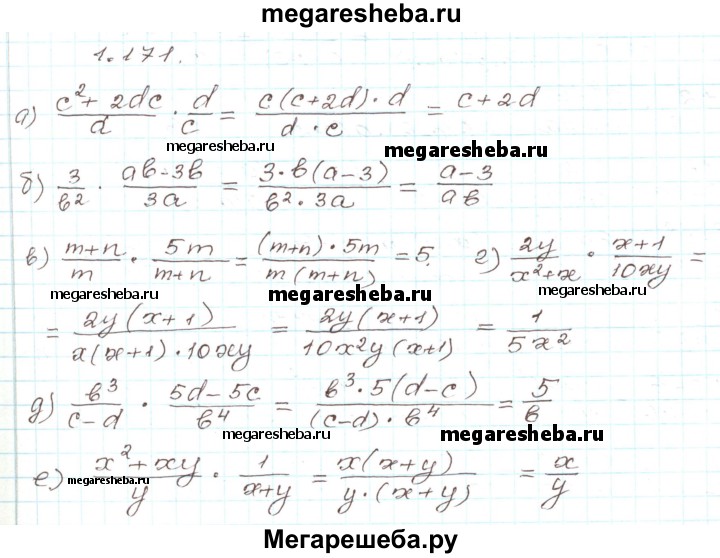 megaresheba.ru
1.171.
а) (c² + 2dc)/d · d/c = (c(c+2d)·d)/(d·c) = c+2d
megaresheba.ru
megaresheba.ru
б) 3/b² · (ab-3b)/3a = (3·b(a-3))/(b²·3a) = (a-3)/ab
в) (m+n)/m · 5m/(m+n) = ((m+n)·5m)/(m(m+n)) = 5. г) 2y/(x²+x) · (x+1)/10xy =
megaresheba.ru megaresheba.ru megaresheba.ru
= (2y(x+1))/(x(x+1)·10xy) = (2y(x+1))/(10x²y(x+1)) = 1/5x²
д) b³/(c-d) · (5d-5c)/b⁴ = (b³·5(d-c))/((c-d)·b⁴) = 5/b
megaresheba.ru megaresheba.ru
е) (x²+xy)/y · 1/(x+y) = (x(x+y))/(y·(x+y)) = x/y
megaresheba.ru
Мегарешеба.ру